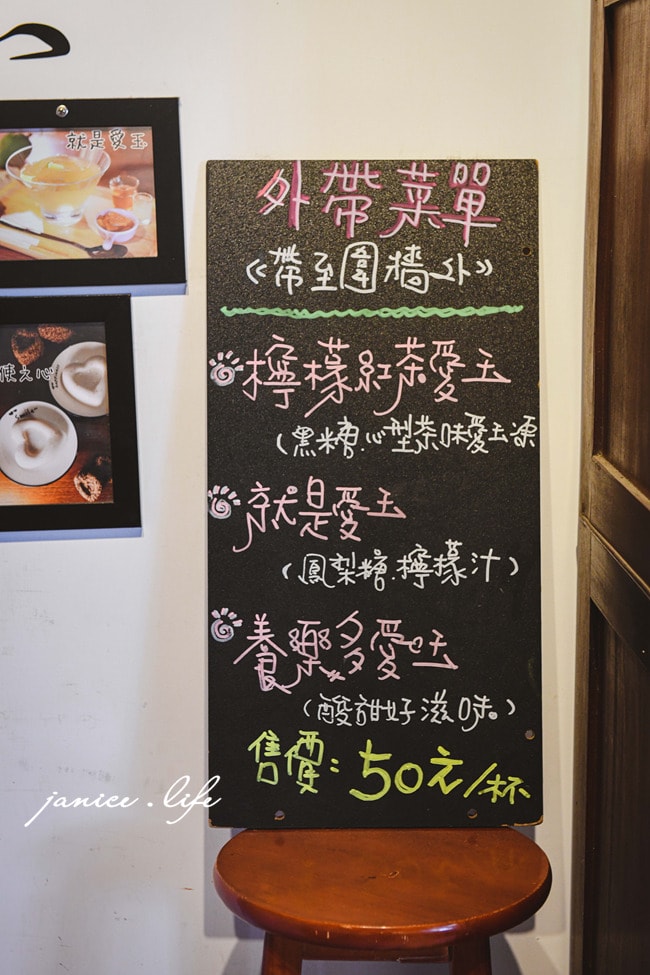 就是愛玉
使之心
外帶菜單
《帶至圍牆外》
檸檬紅茶愛玉
(黑糖.心型茶味愛玉凍
就是愛玉
(鳳梨糖.檸檬汁)
養樂多愛玉
(酸甜好滋味。)
售價:50元/杯
janice.life